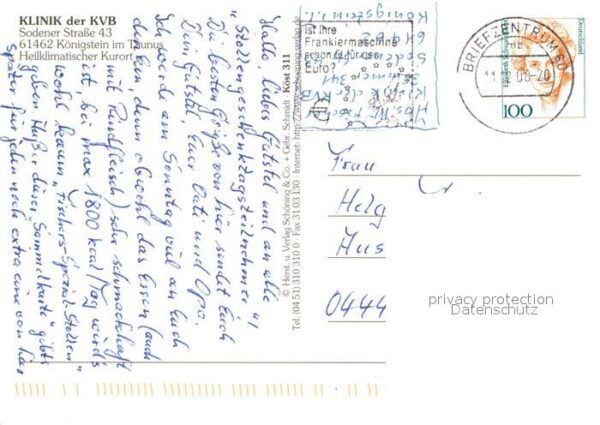 KLINIK der KVB
Sodener Straße 43
61462 Königstein im Taunus
Heilklimatischer Kurort
Hallo, liebes Gutstel und an alle
"Stollengeschenktagsteilnehmer"!
Die besten Grüße von hier sendet Euch
Dein Gutstel, Euer Vati und Opa.
Ich werde am Sonntag viel an Euch
denken, denn obwohl das Essen (auch
mit Rindfleisch) sehr schmackhaft
ist, bei max 1800 kcal/Tag wird's
wohl kaum "Fischers-Spezial-Stollen"
geben. Außer dieser "Sammelkarte" gibts
später für jeden noch extra eine von hier
© Herst. u. Verlag Schöning & Co. + Gebr. Schmidt Köst 311
Tel. (04 51) 310 310 0 · Fax 31 03 130 · Internet: http://www.schoening-verlag.de
Ist Ihre
Frankiermaschine
schon fit für den
Euro?
61462
Königstein i. T.
BRIEFZENTRUM 60
Deutschland
100
Frau
Helg
Aus
0444
privacy protection
Datenschutz